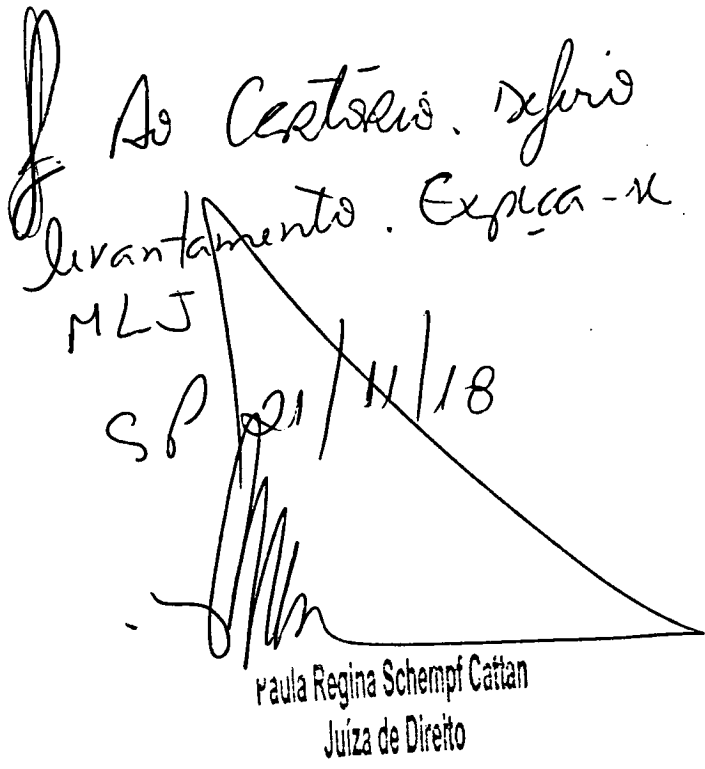 J. Ao Cartório. Defiro
levantamento. Expeça-se
MLJ
SP 21/11/18
Paula Regina Schempf Cattan
Juíza de Direito